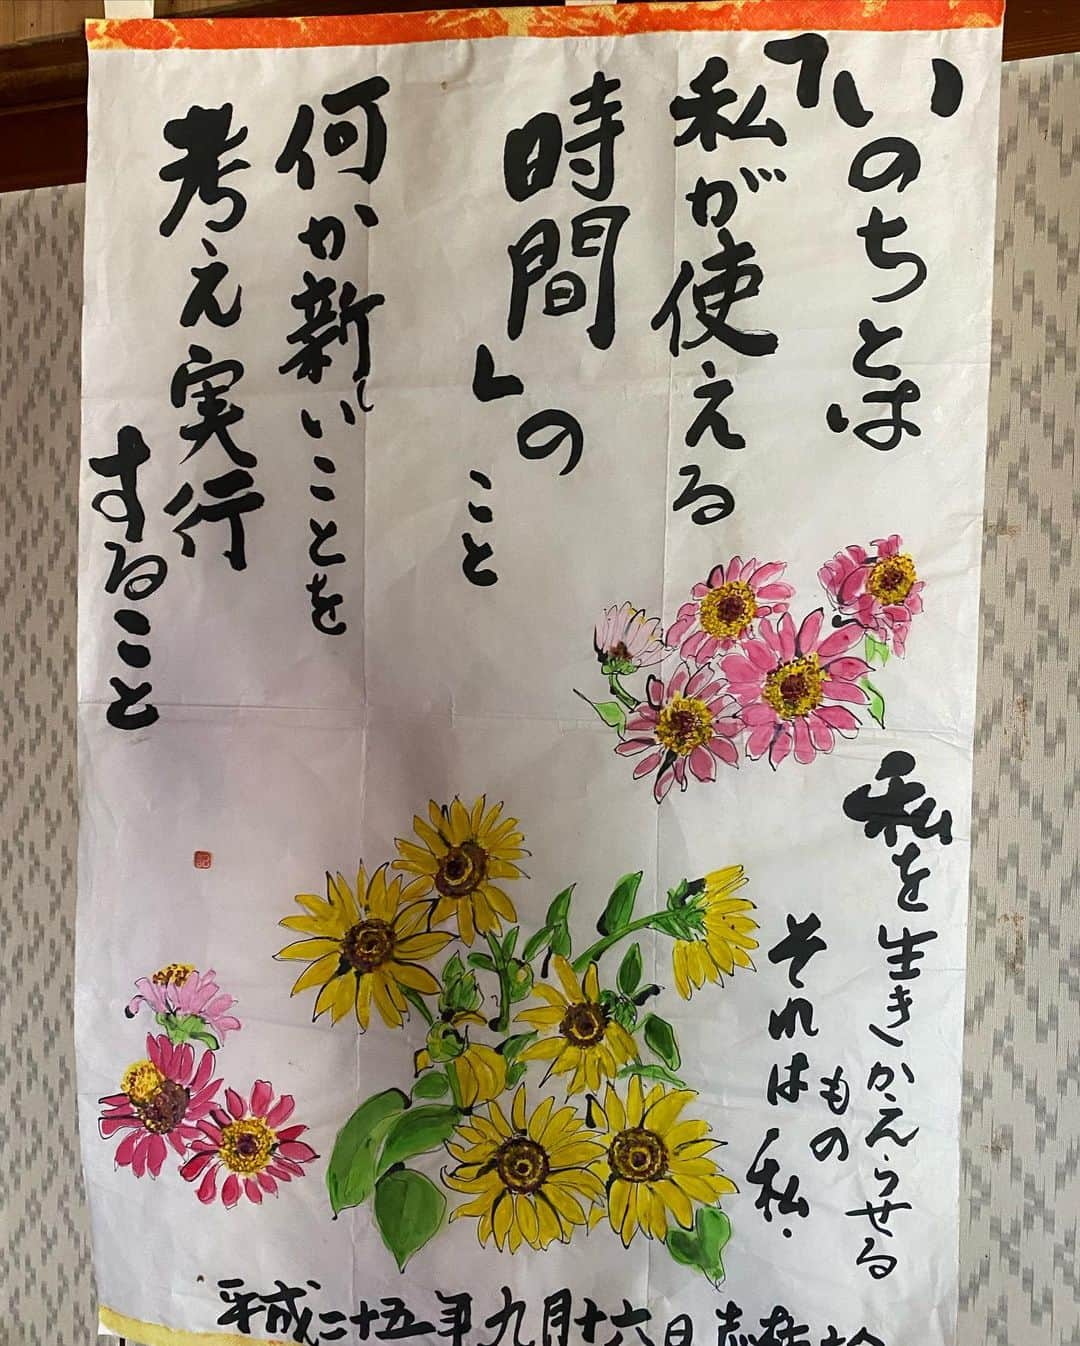 「いのちとは
私が使える
時間」の
こと
何か新しいことを
考え実行
すること
私を生きかえらせる
もの
それは私.
平成二十五年九月十六日